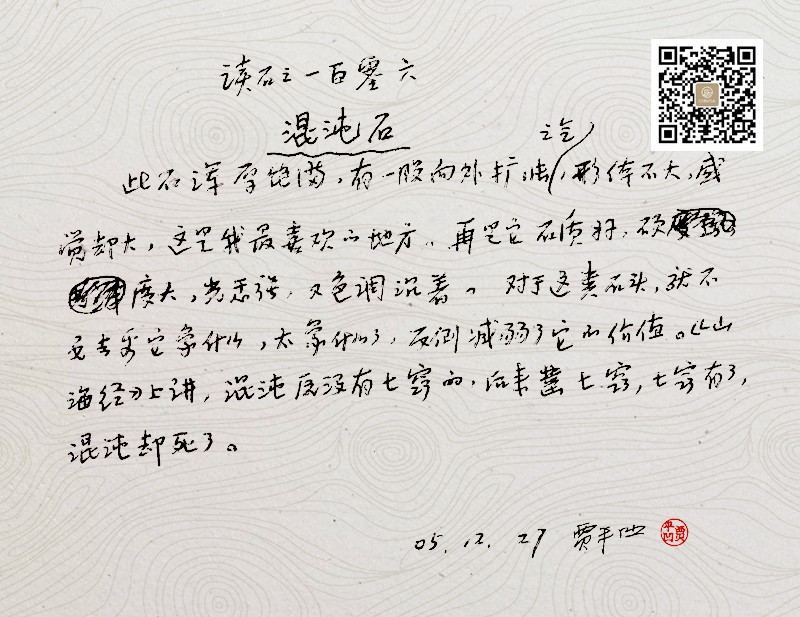 读石之一百零六
混沌石
此石浑厚饱满，有一股向外扩张，形体不大，感
觉却大，这是我最喜欢的地方。再是它石质好，硬
度大，光感强，又色调沉着。对于这类石头，就不
要去看它象什么，太象什么了，反倒减弱了它的价值。《山
海经》上讲，混沌原没有七窍的，后来凿七窍，七窍有了，
混沌却死了。
05.12.27 贾平凹